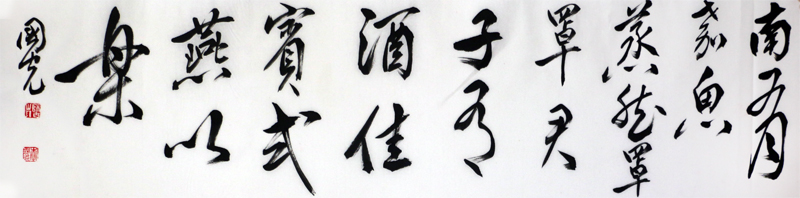 南有
嘉魚
蒸然罩
罩君
子有
酒佳
賓式
燕以
樂
國